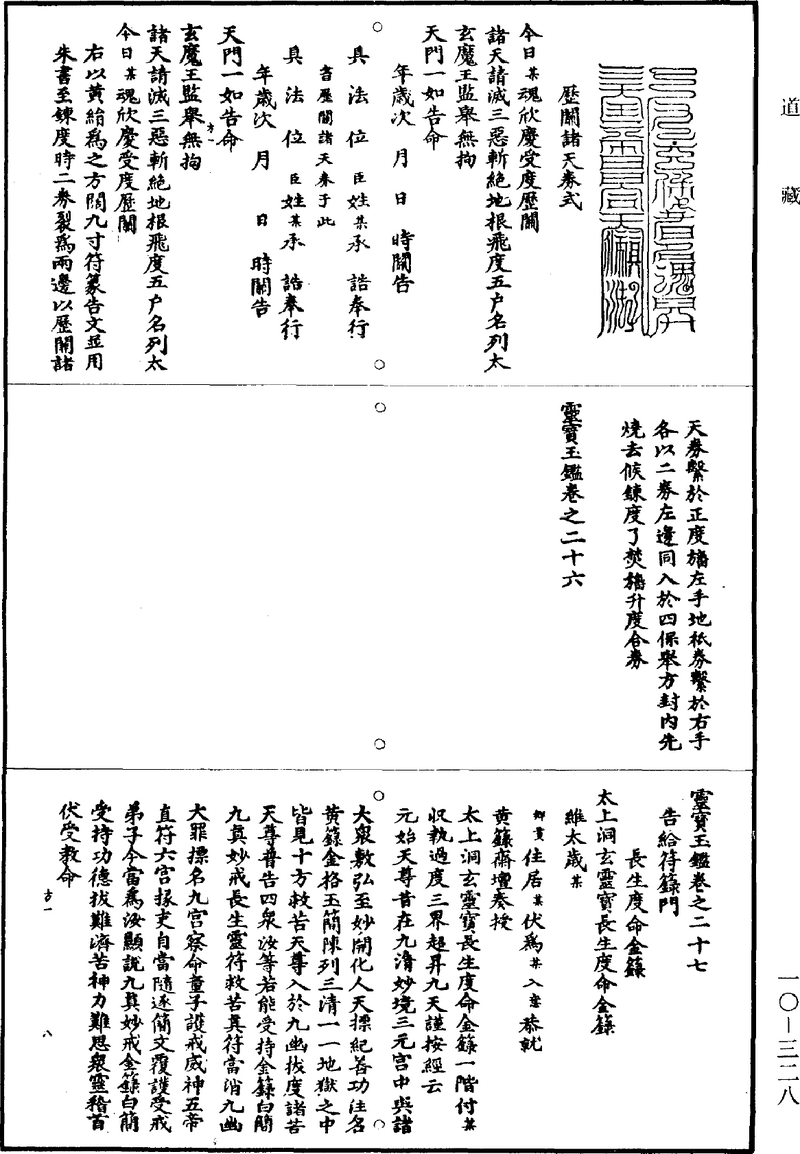 道藏
歷關諸天券式
今日某魂欣慶受度歷關
諸天請滅三惡斬絕地根飛度五户名列太
玄魔王監舉無拘
天門一如告命
年歲次　月　日　時關告
具法位　臣姓某承　誥奉行
右歷關諸天奏于此
具法位　臣姓某承　誥奉行
年歲次　月　日　時關告
天門一如告命
玄魔王監舉無拘
諸天請滅三惡斬絕地根飛度五户名列太
今日某魂欣慶受度歷關
右以黃紿爲之方闊九寸符篆告文並用
朱書至鍊度時二券裂爲兩邊以歷關諸
天券繫於正度旛左手地祇券繫於右手
各以二券左邊同入於四保舉方封内先
燒去候鍊度了焚旛升度合券
靈寶玉鑑卷之二十六
靈寶玉鑑卷之二十七
告給符籙門
長生度命金籙
太上洞玄靈寶長生度命金籙
維太歲某
鄉貫住居某伏爲某入意恭就
黃籙齋壇奏授
太上洞玄靈寶長生度命金籙一階付某
収執過度三界超昇九天謹按經云
元始天尊昔在九清妙境三元宮中與諸
大衆敷弘至妙開化人天摽紀善功注名
黃籙金格玉簡陳列三清一一地獄之中
皆見十方救苦天尊入於九幽拔度諸苦
天尊普告四衆汝等若能受持金籙白簡
九真妙戒長生靈符救苦真符當消九幽
大罪摽名九宮察命童子護戒威神五帝
直符六宮掾吏自當隨逐簡文覆護受戒
弟子今當爲汝顯說九真妙戒金籙白簡
受持功德拔難濟苦神力難思衆靈稽首
伏受教命
方一
方一　八
一〇—三二八